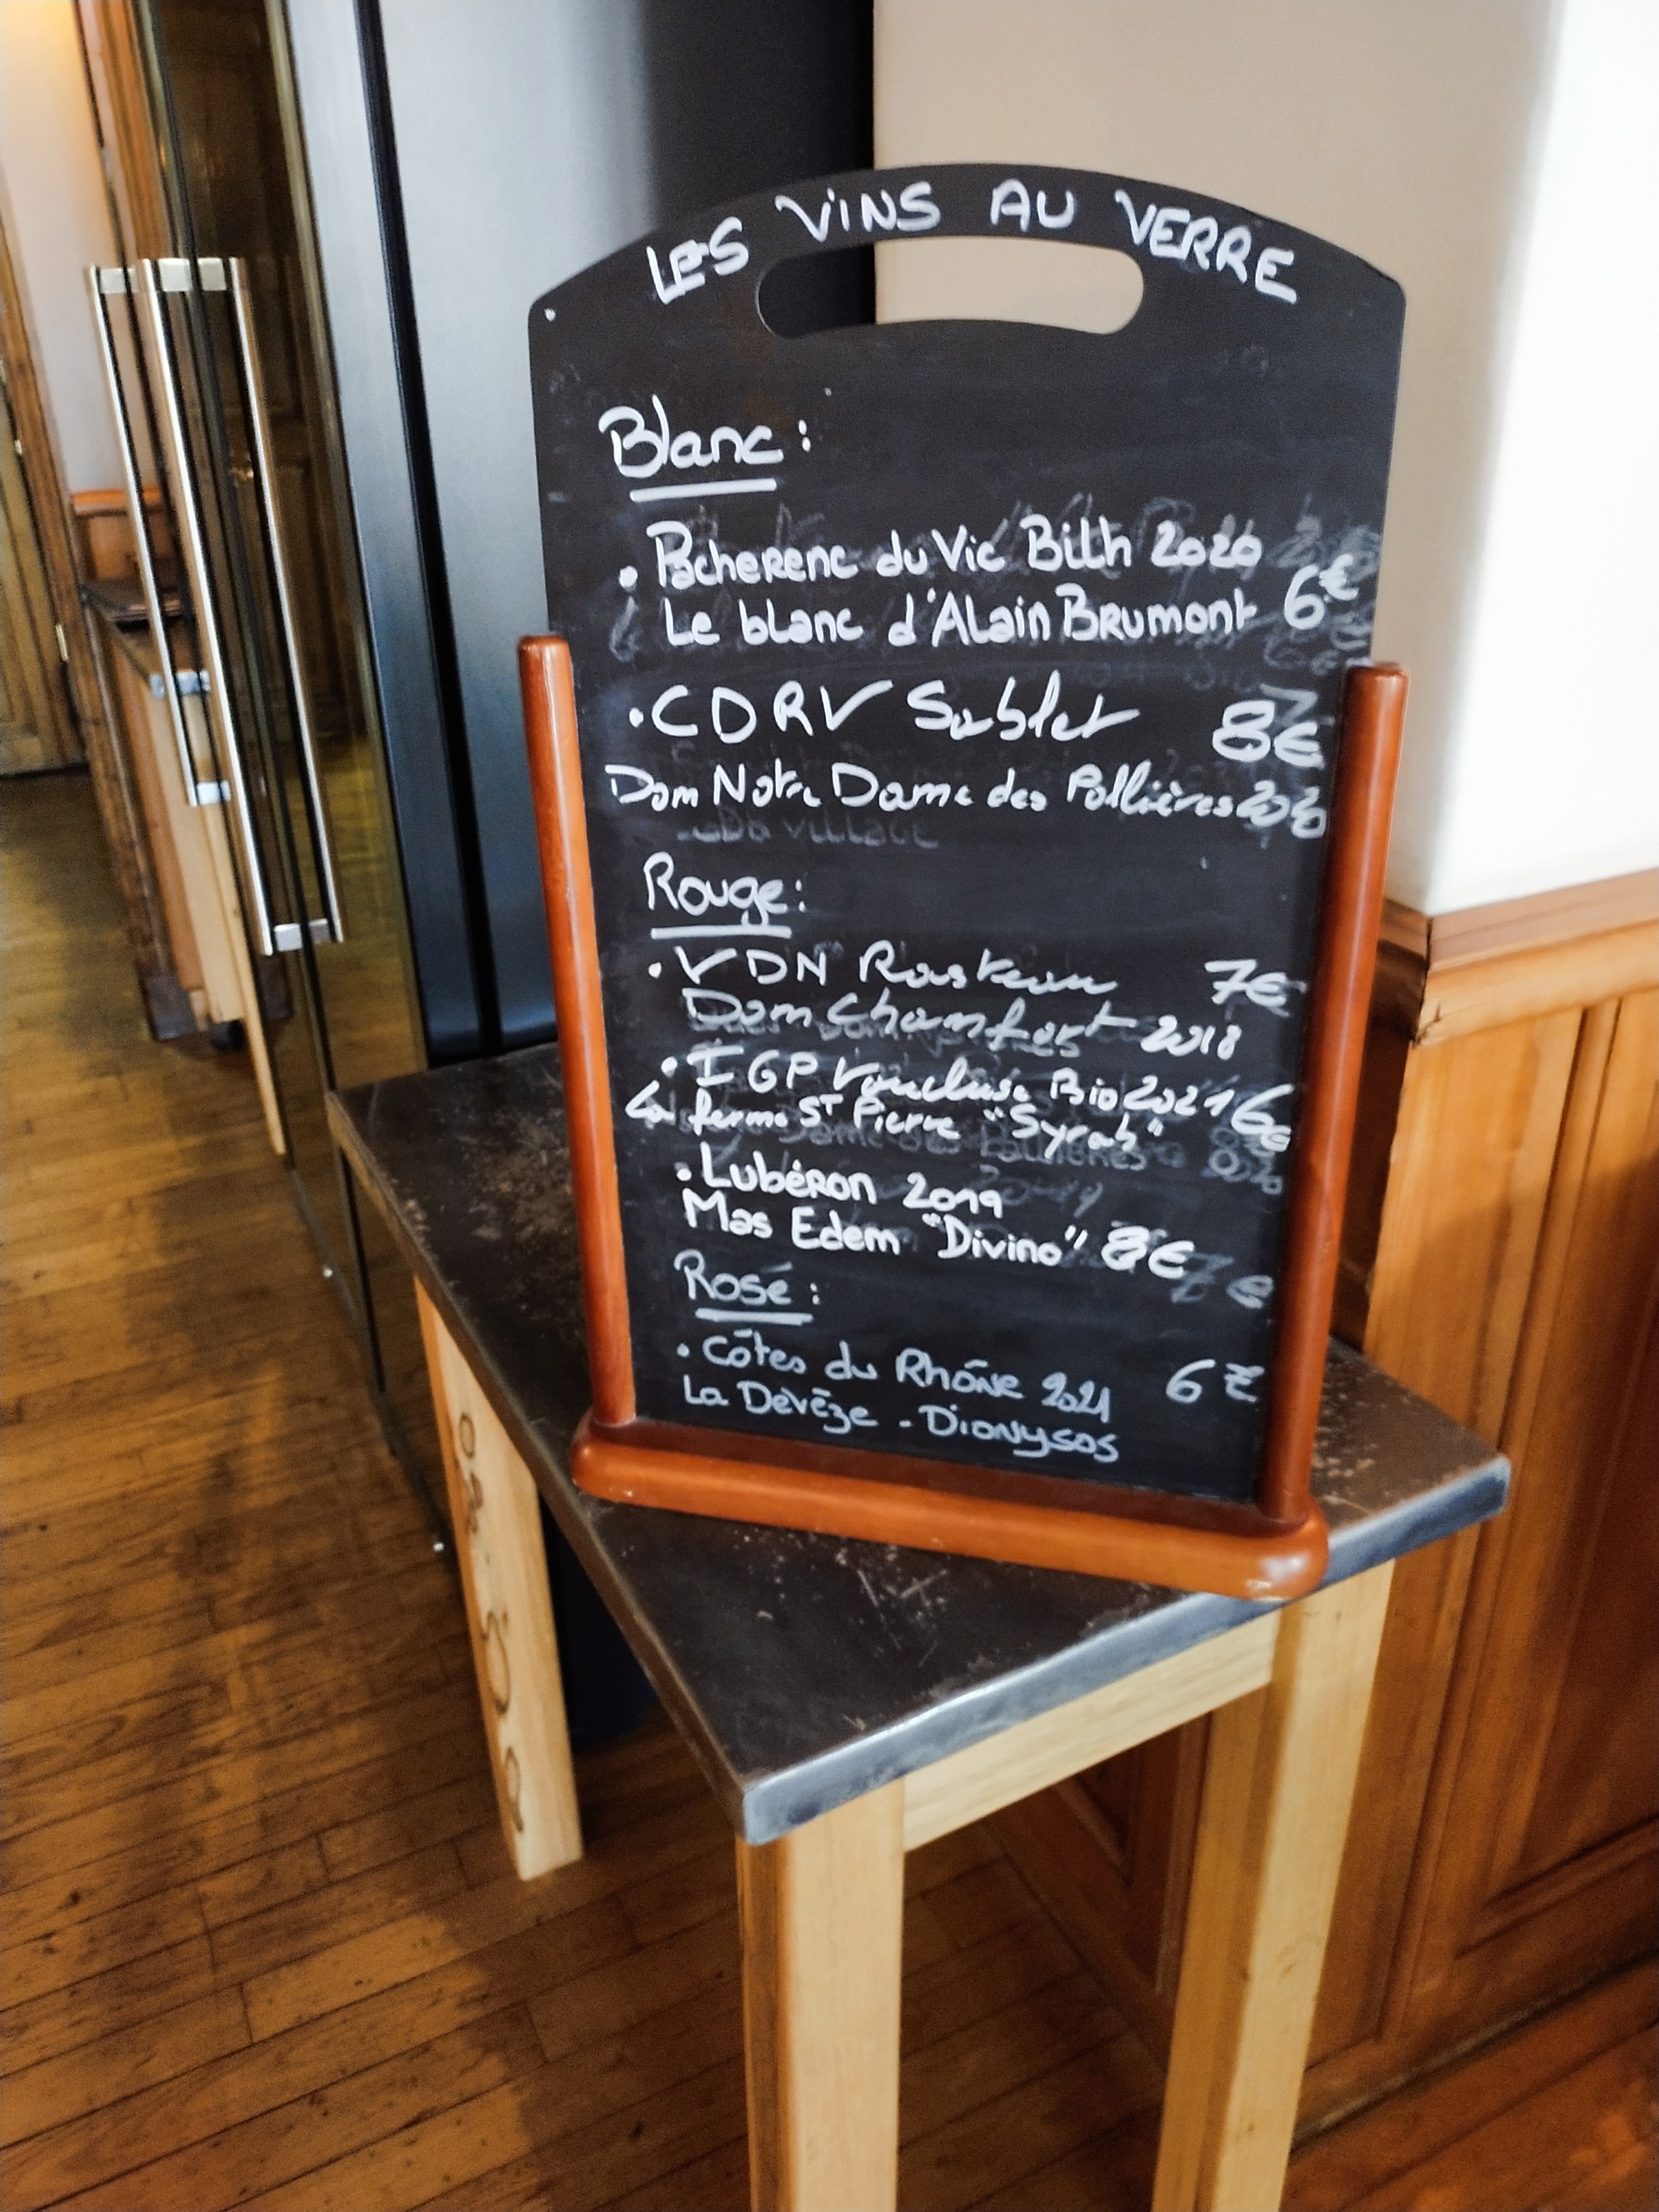 LES VINS AU VERRE
Blanc :
• Pacherenc du Vic Bilh 2020
Le blanc d'Alain Brumont 6€
• CDRV Sablet 8€
Dom Notre Dame des Pallières 2020
Rouge :
• VDN Rasteau 7€
Dom Chamfort 2018
• IGP Vaucluse Bio 2021 6€
La ferme St Pierre "Syrah"
• Lubéron 2019
Mas Edem "Divino" 8€
Rosé :
• Côtes du Rhône 2021 6€
La Devèze - Dionysos